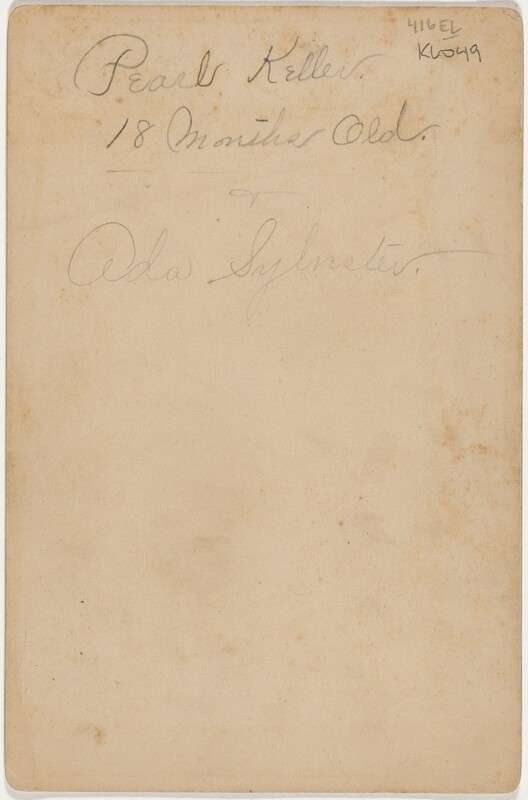 416EL
KL049
Pearl Keller.
18 Months Old.
Ada Sylvester.